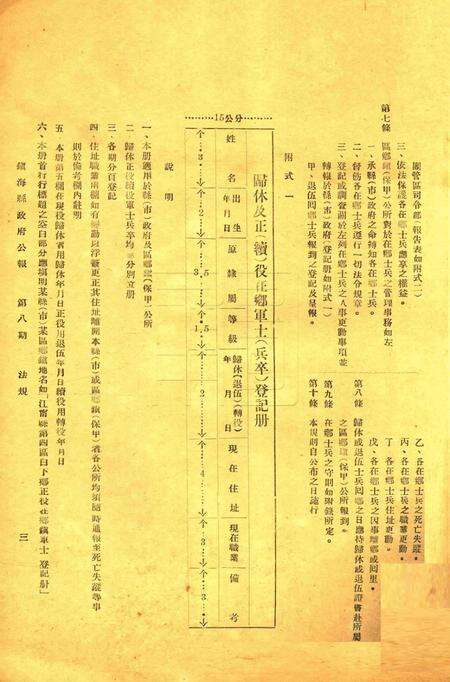 團管區司令部(報告表如附式二)
三、依法保護各在鄉士兵應享之權益。
第七條 區鄉鎮(保甲)公所對於在鄉士兵之管理事務如左
一、承縣(市)政府之命轉知各在鄉士兵。
二、督飭各在鄉士兵遵行一切法令規章。
三、登記或調查關於左列在鄉士兵之人事更動事項並
轉報於縣(市)政府(登記冊如附式一)
甲、退伍囘鄉士兵報到之登記及呈報。
乙、各在鄉士兵之死亡失蹤。
丙、各在鄉士兵之職業更動。
丁、各在鄉士兵住址更動。
戊、各在鄉士兵之因事離鄉或囘里。
第八條 歸休或退伍士兵囘鄉之日應持歸休或退伍證書赴所屬
之區鄉鎮(保甲)公所報到。
第九條 在鄉士兵之守則如附錄所定。
第十條 本規則自公布之日施行
附式一
歸休及正(續)役在鄉軍士(兵卒)登記冊
15公分
姓名
出生年月日
原隸屬
等級
歸休(退伍)(轉役)年月日
現在住址
現在職業
備考
3
2
3.5
1.5
2
4
3
3
說明
一、本冊適用於縣(市)政府及區鄉鎮(保甲)公所
二、歸休正役續役軍士兵卒均應分別立冊
三、各期分頁登記
四、住址職業兩欄如有變動應浮簽更正其住址離開本縣(市)或區鄉鎮(保甲)者各公所均須隨時通報至死亡失蹤等事
則於備考欄內註明
五、本冊第五欄在現役歸休者用歸休年月日正役用退伍年月日續役用轉役年月日
六、本冊首行標題之空白部分應填明某縣(市)某區鄉鎮地名如「江甯縣第四區白下鄉正役在鄉軍士登記冊」
鎮海縣政府公報 第八期 法規
三